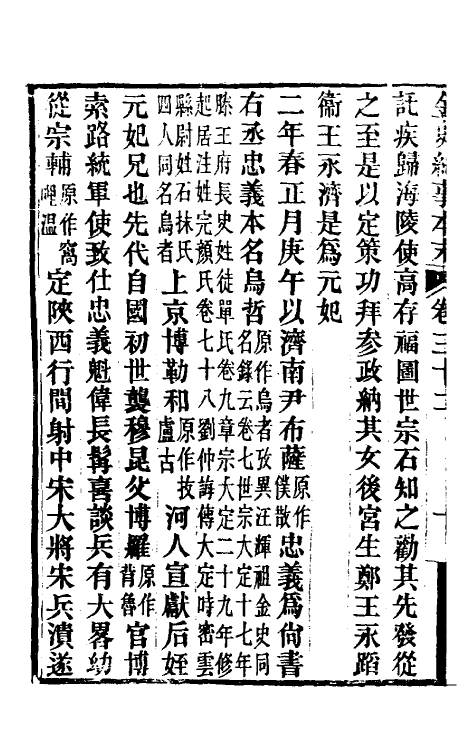 金史紀事本末 卷三十二
託疾歸海陵使高存福圖世宗石知之勸其先發從
之至是以定策功拜參政納其女後宮生鄭王永蹈
衞王永濟是爲元妃
二年春正月庚午以濟南尹布薩原作僕散忠義爲尙書
右丞忠義本名烏哲原作烏者攷異汪輝祖金史同名錄云卷七世宗大定十七年滕王府長史姓徒單氏卷九章宗大定二十九年修起居注姓完顏氏卷七十八劉仲誨傳大定時密雲縣尉姓石抹氏四人同名烏者上京博勒和原作拔盧古河人宣獻后姪
元妃兄也先代自國初世襲穆昆父博羅原作背魯官博
索路統軍使致仕忠義魁偉長髯喜談兵有大畧幼
從宗輔原作窩哩溫定陝西行間射中宋大將宋兵潰遂